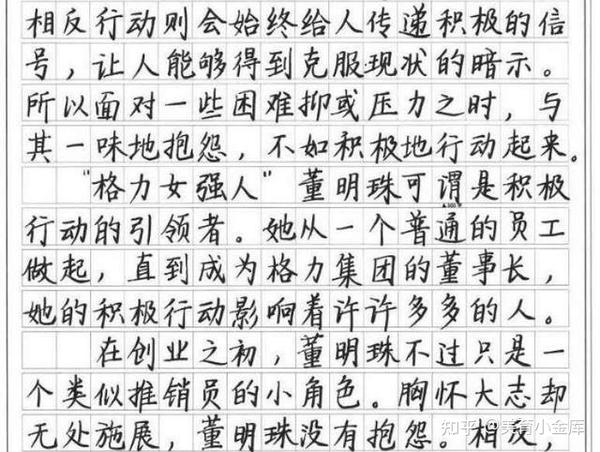 相反行动则会始终给人传递积极的信
号，让人能够得到克服现状的暗示。
所以面对一些困难抑或压力之时，与
其一味地抱怨，不如积极地行动起来。
“格力女强人”董明珠可谓是积极
▲300字
行动的引领者。她从一个普通的员工
做起，直到成为格力集团的董事长，
她的积极行动影响着许许多多的人。
在创业之初，董明珠不过只是一
个类似推销员的小角色。胸怀大志却
无处施展，董明珠没有抱怨。相反，
知乎 @美育小金库